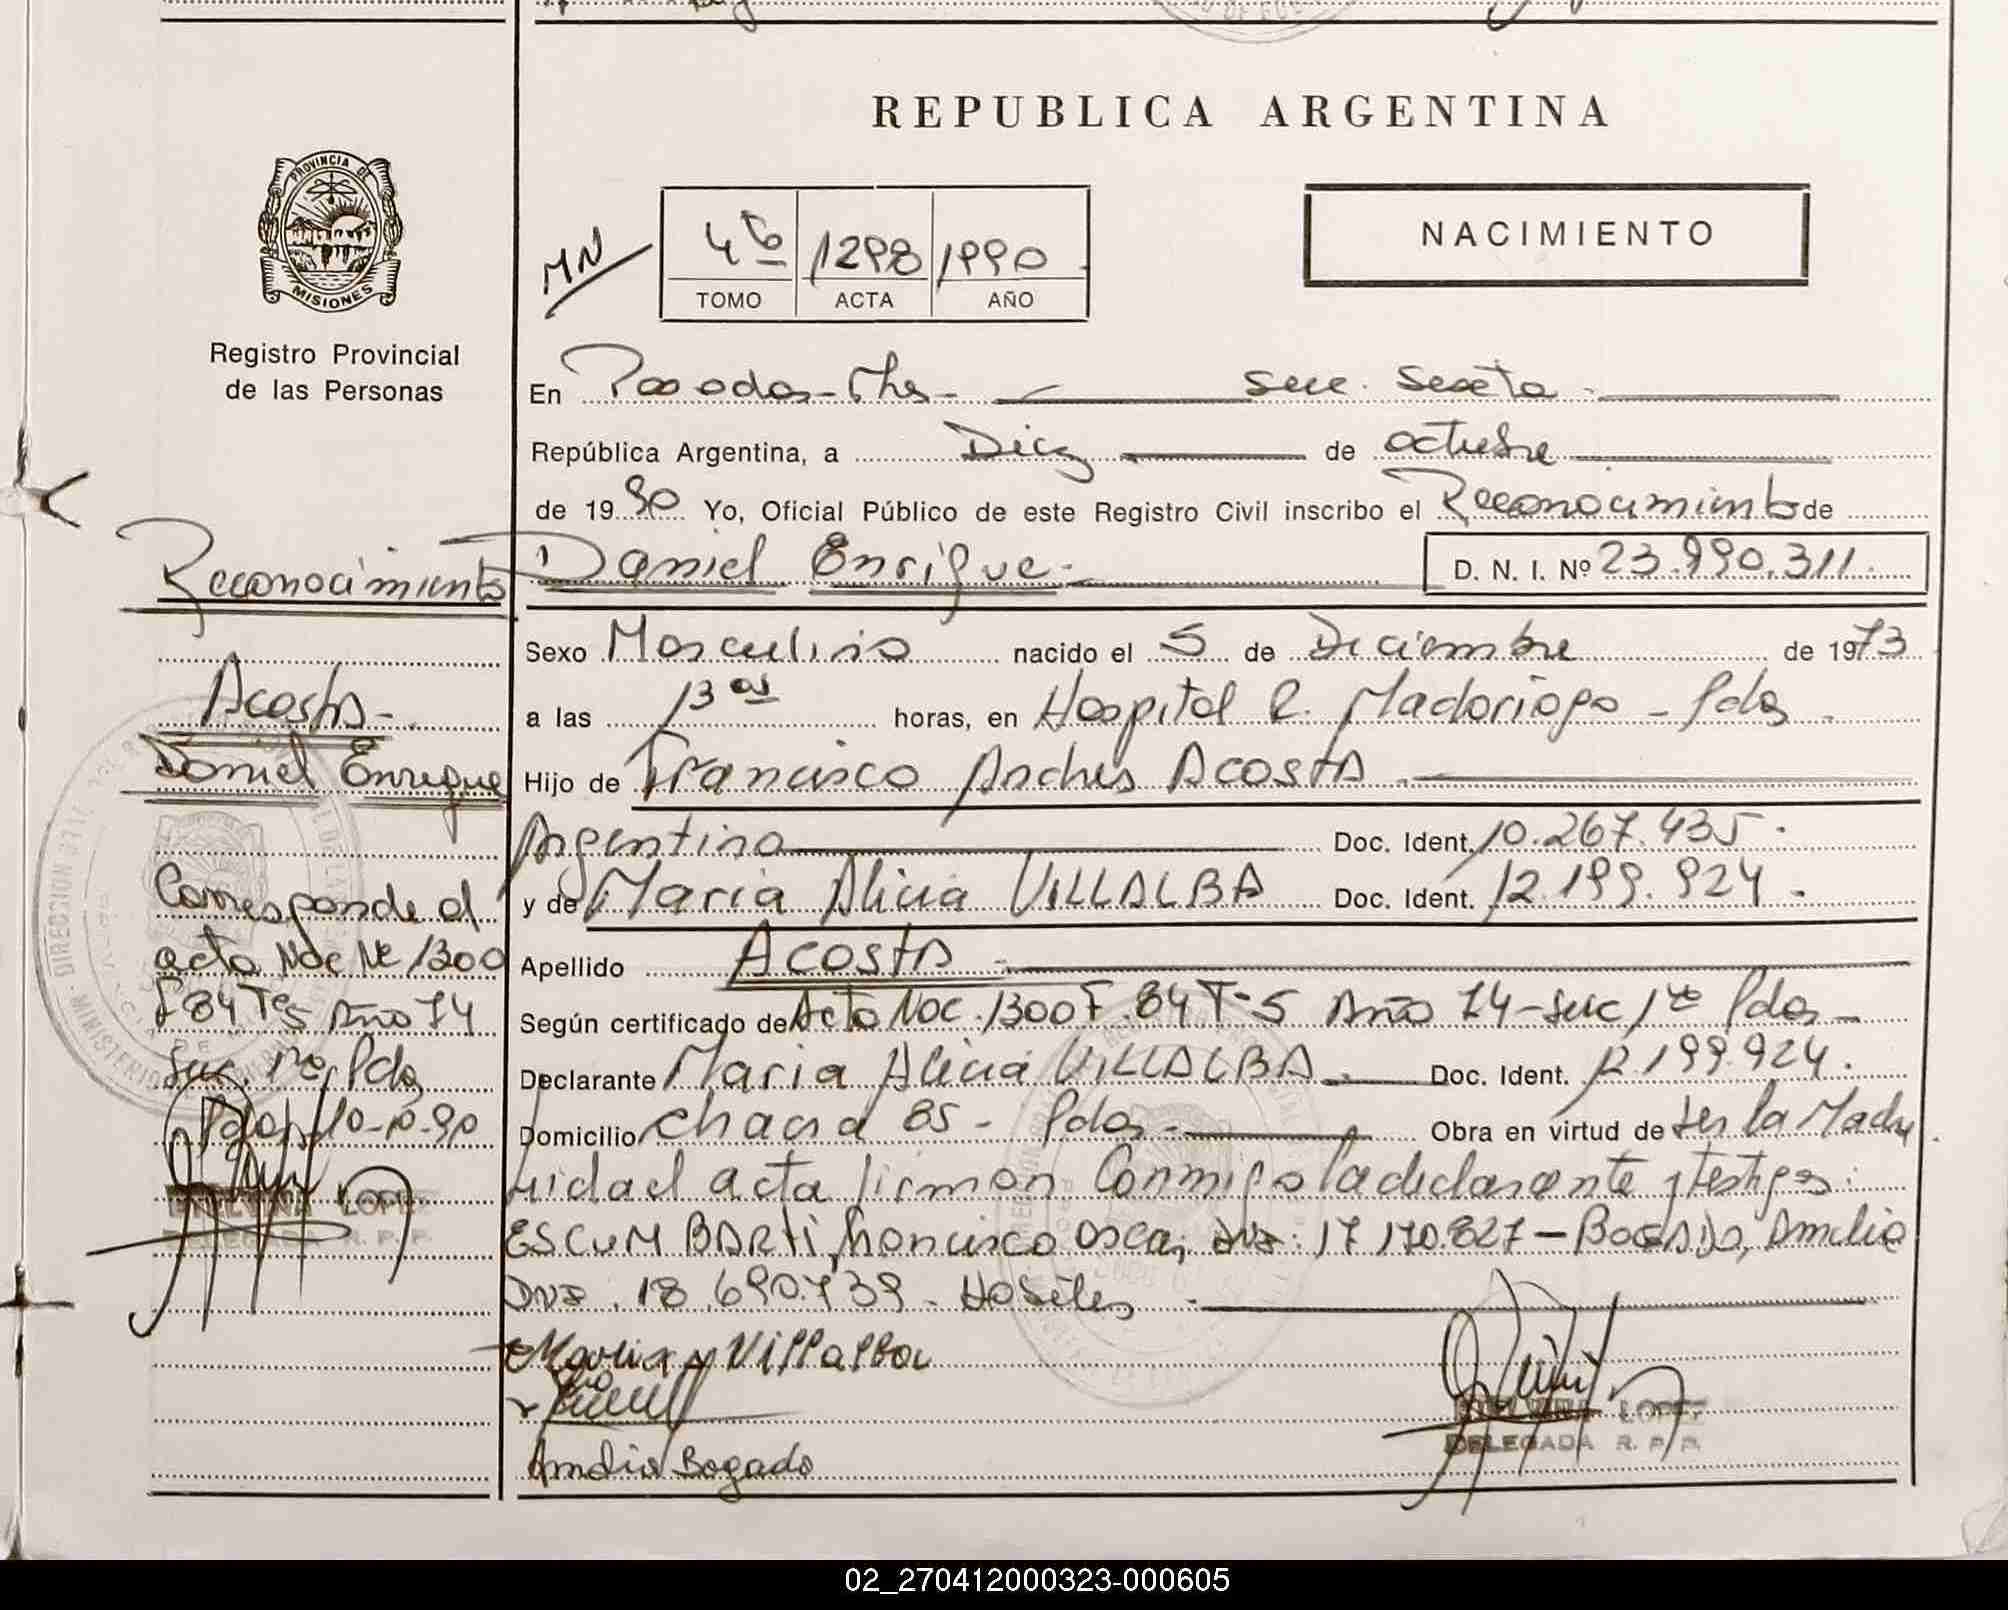 REPUBLICA ARGENTINA
PROVINCIA DE
MISIONES
Registro Provincial
de las Personas
NACIMIENTO
MN
4to 1298 1990
TOMO ACTA AÑO
En Posadas - Mnes - secc. Sexta -
República Argentina, a Diez de octubre
de 1990 Yo, Oficial Público de este Registro Civil inscribo el Reconocimiento de
Daniel Enrique - D. N. I. Nº 23.990.311.
Sexo Masculino nacido el 5 de Diciembre de 1973
a las 13 as horas, en Hospital R. Madariaga - Pdas
Hijo de Francisco Andres Acosta -
Argentina Doc. Ident. 10.267.435.
y de Maria Alicia VILLALBA Doc. Ident. 12.199.924.
Apellido Acosta -
Según certificado de Acta Nac. 1300 F. 84 T-5 Año 74 - Secc 1ra Pdas -
Declarante Maria Alicia VILLALBA Doc. Ident. 12.199.924.
Domicilio chacra 85 - Pdas - Obra en virtud de ser la Madre
Leida el acta firman Conmigo la declarante y testigos:
ESCUMBARTI, Francisco Oscar, DNI: 17.170.827 - BOGADO, Amelia
DNI. 18.690.739 - Habiles -
Maria A Villalba
Amelia Bogado
LOPEZ
DELEGADA R. P. P.
Reconocimiento
Acosta -
Daniel Enrique
Corresponde al
acta Nac Nº 1300
F 84 Tº5 Año 74
Secc. 1ra, Pdas
Pdas, 10-10-90
LOPEZ
DELEGADA R. P. P.
02_270412000323-000605